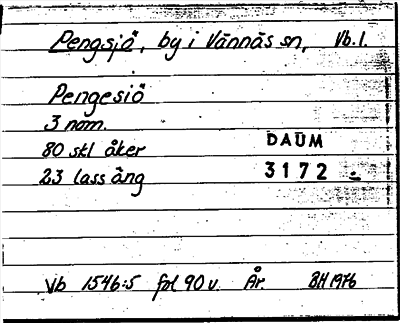 Pengsjö, by i Vännäs sn, Vb.l.
Pengesiö
3 nom.
80 skl åker
23 lass äng
DAUM
3172
Vb 1546:5 fol 90 v. År. BH 1976